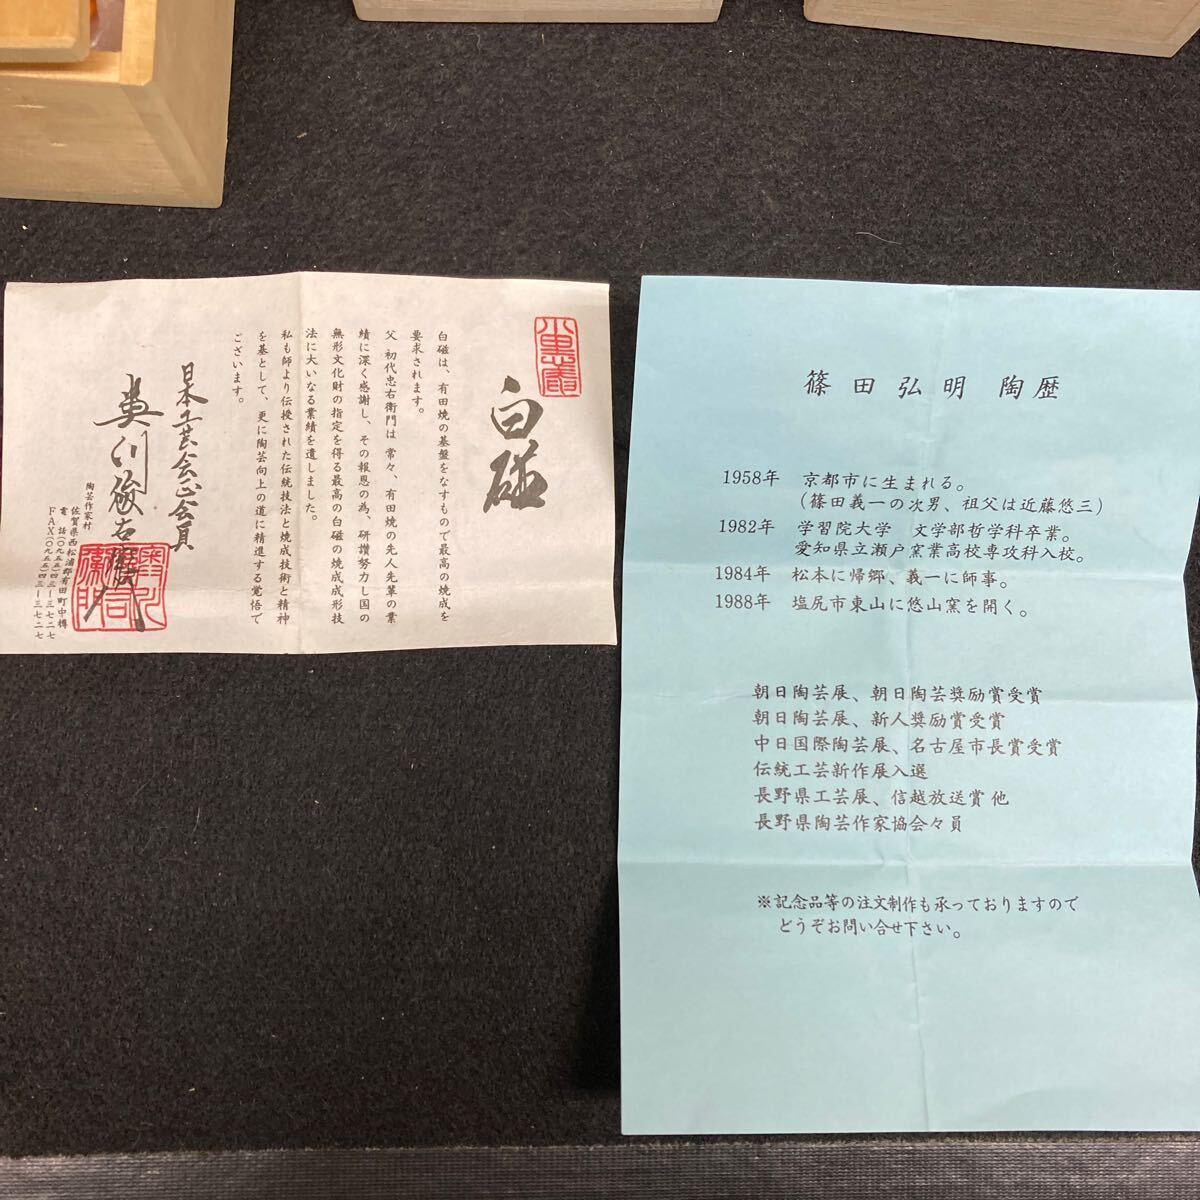 白磁
白磁は、有田焼の基盤をなすもので最高の焼成を
要求されます。
父 初代忠右衛門は 常々、有田焼の先人先輩の業
績に深く感謝し、その報恩の為、研讃努力し国の
無形文化財の指定を得る最高の白磁の焼成成形技
法に大いなる業績を遺しました。
私も師より伝授された伝統技法と焼成技術と精神
を基として、更に陶芸向上の道に精進する覚悟で
ございます。
日本工芸会正会員
陶芸作家村
佐賀県西松浦郡有田町中樽
電話(〇九五五)四三ー三七二七
FAX(〇九五五)四三ー三七二七
篠田弘明 陶歴
1958年 京都市に生まれる。
(篠田義一の次男、祖父は近藤悠三)
1982年 学習院大学 文学部哲学科卒業。
愛知県立瀬戸窯業高校専攻科入校。
1984年 松本に帰郷、義一に師事。
1988年 塩尻市東山に悠山窯を開く。
朝日陶芸展、朝日陶芸奨励賞受賞
朝日陶芸展、新人奨励賞受賞
中日国際陶芸展、名古屋市長賞受賞
伝統工芸新作展入選
長野県工芸展、信越放送賞 他
長野県陶芸作家協会々員
※記念品等の注文制作も承っておりますので
どうぞお問い合せ下さい。